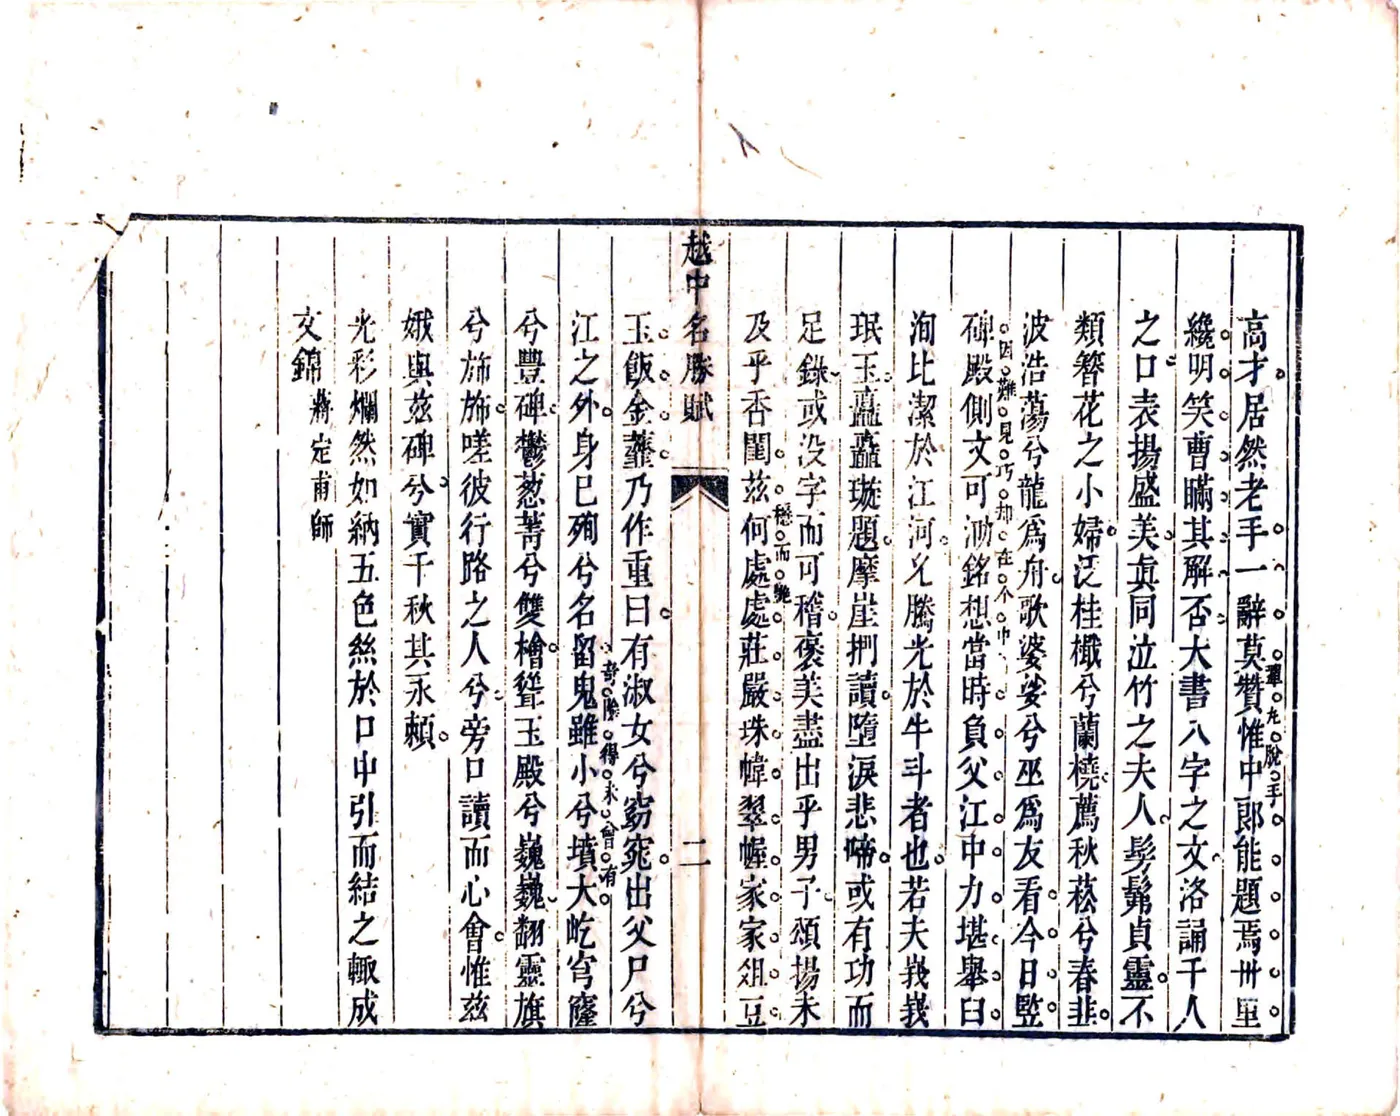 高才居然老手一辭莫贊惟中郎能題焉卅里
纔明笑曹瞞其解否大書八字之文洛誦千人
之口表揚盛美眞同泣竹之夫人髣髴貞靈不
類簪花之小婦泛桂檝兮蘭橈薦秋菘兮春韭
波浩蕩兮龍爲舟歌婆娑兮巫爲友看今日竪
因難見巧却在个中
碑殿側文可泐銘想當時負父江中力堪舉臼
洵比潔於江河兄騰光於牛斗者也若夫峩峩
珉玉矗矗璇題摩崖捫讀墮淚悲啼或有功而
足錄或没字而可稽褒美盡出乎男子頌揚未
穩而艷
及乎香閨茲何處處莊嚴珠幃翠幄家家俎豆
越中名勝賦
二
玉飯金虀乃作重曰有淑女兮窈窕出父尸兮
江之外身已殉兮名留鬼雖小兮墳大屹穹窿
兮豐碑鬱葱菁兮雙檜聳玉殿兮巍巍翻靈旗
兮旆旆嗟彼行路之人兮旁口讀而心會惟茲
娥與茲碑兮實千秋其永頼
光彩爛然如納五色絲於口中引而結之輙成
文錦 蔣定甫師